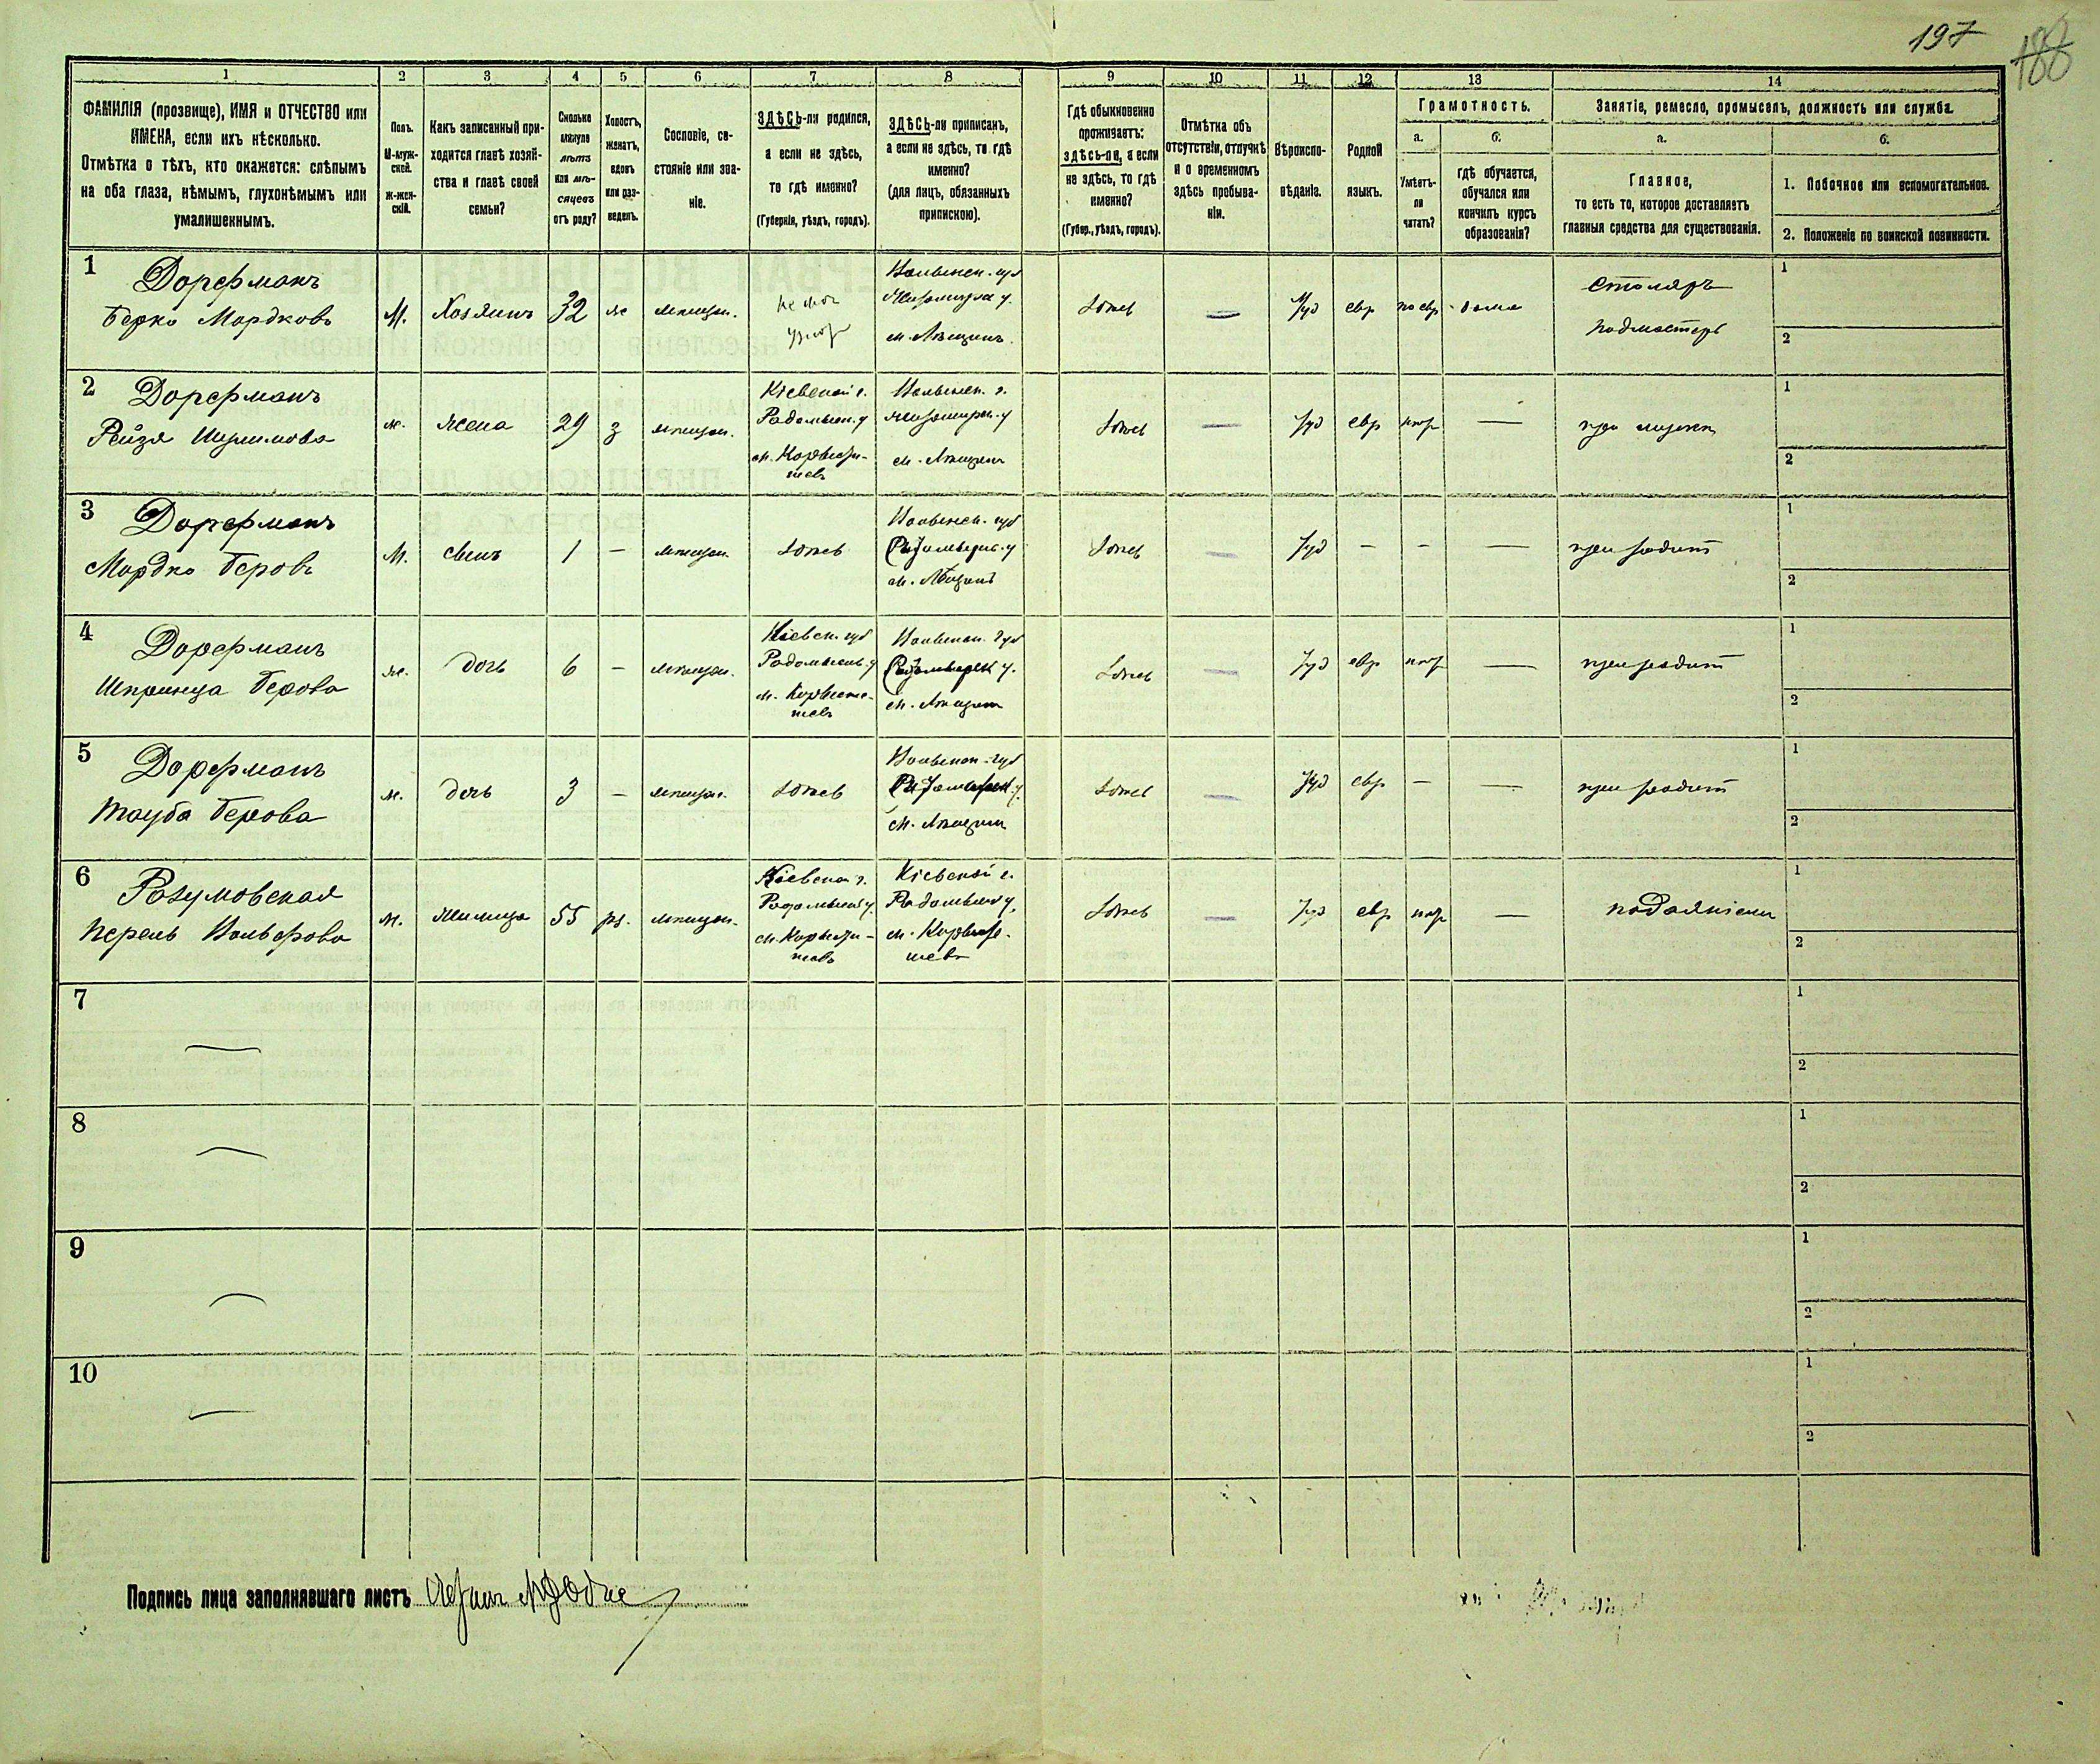 197
188
1 2 3 4 5 6 7 8 9 10 11 12 13 14
ФАМИЛІЯ (прозвище), ИМЯ и ОТЧЕСТВО или
ИМЕНА, если ихъ нѣсколько.
Отмѣтка о тѣхъ, кто окажется: слѣпымъ
на оба глаза, нѣмымъ, глухонѣмымъ или
умалишеннымъ.
Полъ.
М-муж-
ской.
Ж-жен-
скій.
Какъ записанный при-
ходится главѣ хозяй-
ства и главѣ своей
семьи?
Сколько
минуло
лѣтъ
или мѣ-
сяцевъ
отъ роду?
Холостъ,
женатъ,
вдовъ
или раз-
веденъ.
Сословіе, со-
стояніе или зва-
ніе.
ЗДѢСЬ-ли родился,
а если не здѣсь,
то гдѣ именно?
(Губернія, уѣздъ, городъ).
ЗДѢСЬ-ли приписанъ,
а если не здѣсь, то гдѣ
именно?
(для лицъ, обязанныхъ
припискою).
Гдѣ обыкновенно
проживаетъ:
здѣсь-ли, а если
не здѣсь, то гдѣ
именно?
(Губер., уѣздъ, городъ).
Отмѣтка объ
отсутствіи, отлучкѣ
и о временномъ
здѣсь пребыва-
ніи.
Вѣроиспо-
вѣданіе.
Родной
языкъ.
Грамотность.
а.
Умѣетъ-
ли
читать?
б.
гдѣ обучается,
обучался или
кончилъ курсъ
образованія?
Занятіе, ремесло, промыселъ, должность или служба.
а.
Главное,
то есть то, которое доставляетъ
главныя средства для существованія.
б.
1. Побочное или вспомогательное.
2. Положеніе по воинской повинности.
1
Дорфманъ
Берко Мордковъ
М.
Хозяинъ
32
ж
мѣщан.
Волынск. губ
Житомирск у.
здѣсь
Іуд
евр
по евр
дома
столяръ
подмастерь
1
2
2
Дорфманъ
Рейзя
ж.
жена
29
з
мѣщан.
Кіевской г.
Радомысл. у
м. Коросты-
шевъ
Волынск. г.
Житомирск. у
здѣсь
Іуд
евр
нгр
при мужѣ
1
2
3
Дорфманъ
Мордко Беровъ
М.
сынъ
1
—
мѣщан.
здѣсь
Волынск. губ
здѣсь
Іуд
—
—
—
при родит
1
2
4
Дорфманъ
Шпринца Берова
ж.
дочь
6
—
мѣщан.
Кіевск. губ
Радомысл. у
м. Корысты-
шевъ
Волынск. губ
здѣсь
Іуд
евр
нгр
—
при родит
1
2
5
Дорфманъ
Тауба Берова
ж.
дочь
3
—
мѣщан.
здѣсь
Волынск. губ
здѣсь
Іуд
евр
—
—
при родит
1
2
6
Разумовская
Перель Вольфова
ж.
55
мѣщан.
Кіевской г.
Радомысл у.
м. Корысты-
шевъ
Кіевской г.
Радомысл у.
м. Коросты-
шевъ
здѣсь
Іуд
евр
нгр
—
подаяніемъ
1
2
7
1
2
8
1
2
9
1
2
10
1
2
Подпись лица заполнявшаго листъ